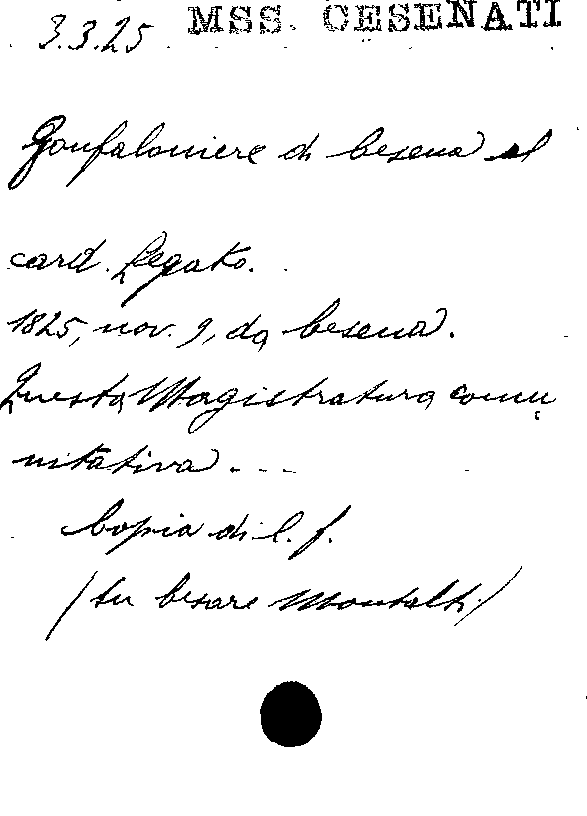 3.3.25 MSS. CESENATI
Gonfaloniere di Cesena al
card. Legato.
1825, nov. 9, da Cesena.
Questa Magistratura comu
nitativa . - - -
Copia di C. f.
(su Cesare Montalti)